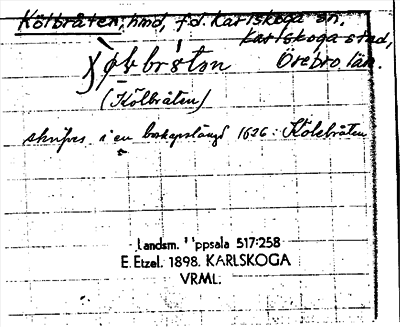 Kölbråten, hmd, f.d. Karlskoga sn,
Karlskoga stad,
Örebro län.
(Kölbråten)
skrifves i en boskapslängd 1626: Kölebråten
Landsm. Uppsala 517:258
E. Etzel. 1898. KARLSKOGA
VRML.